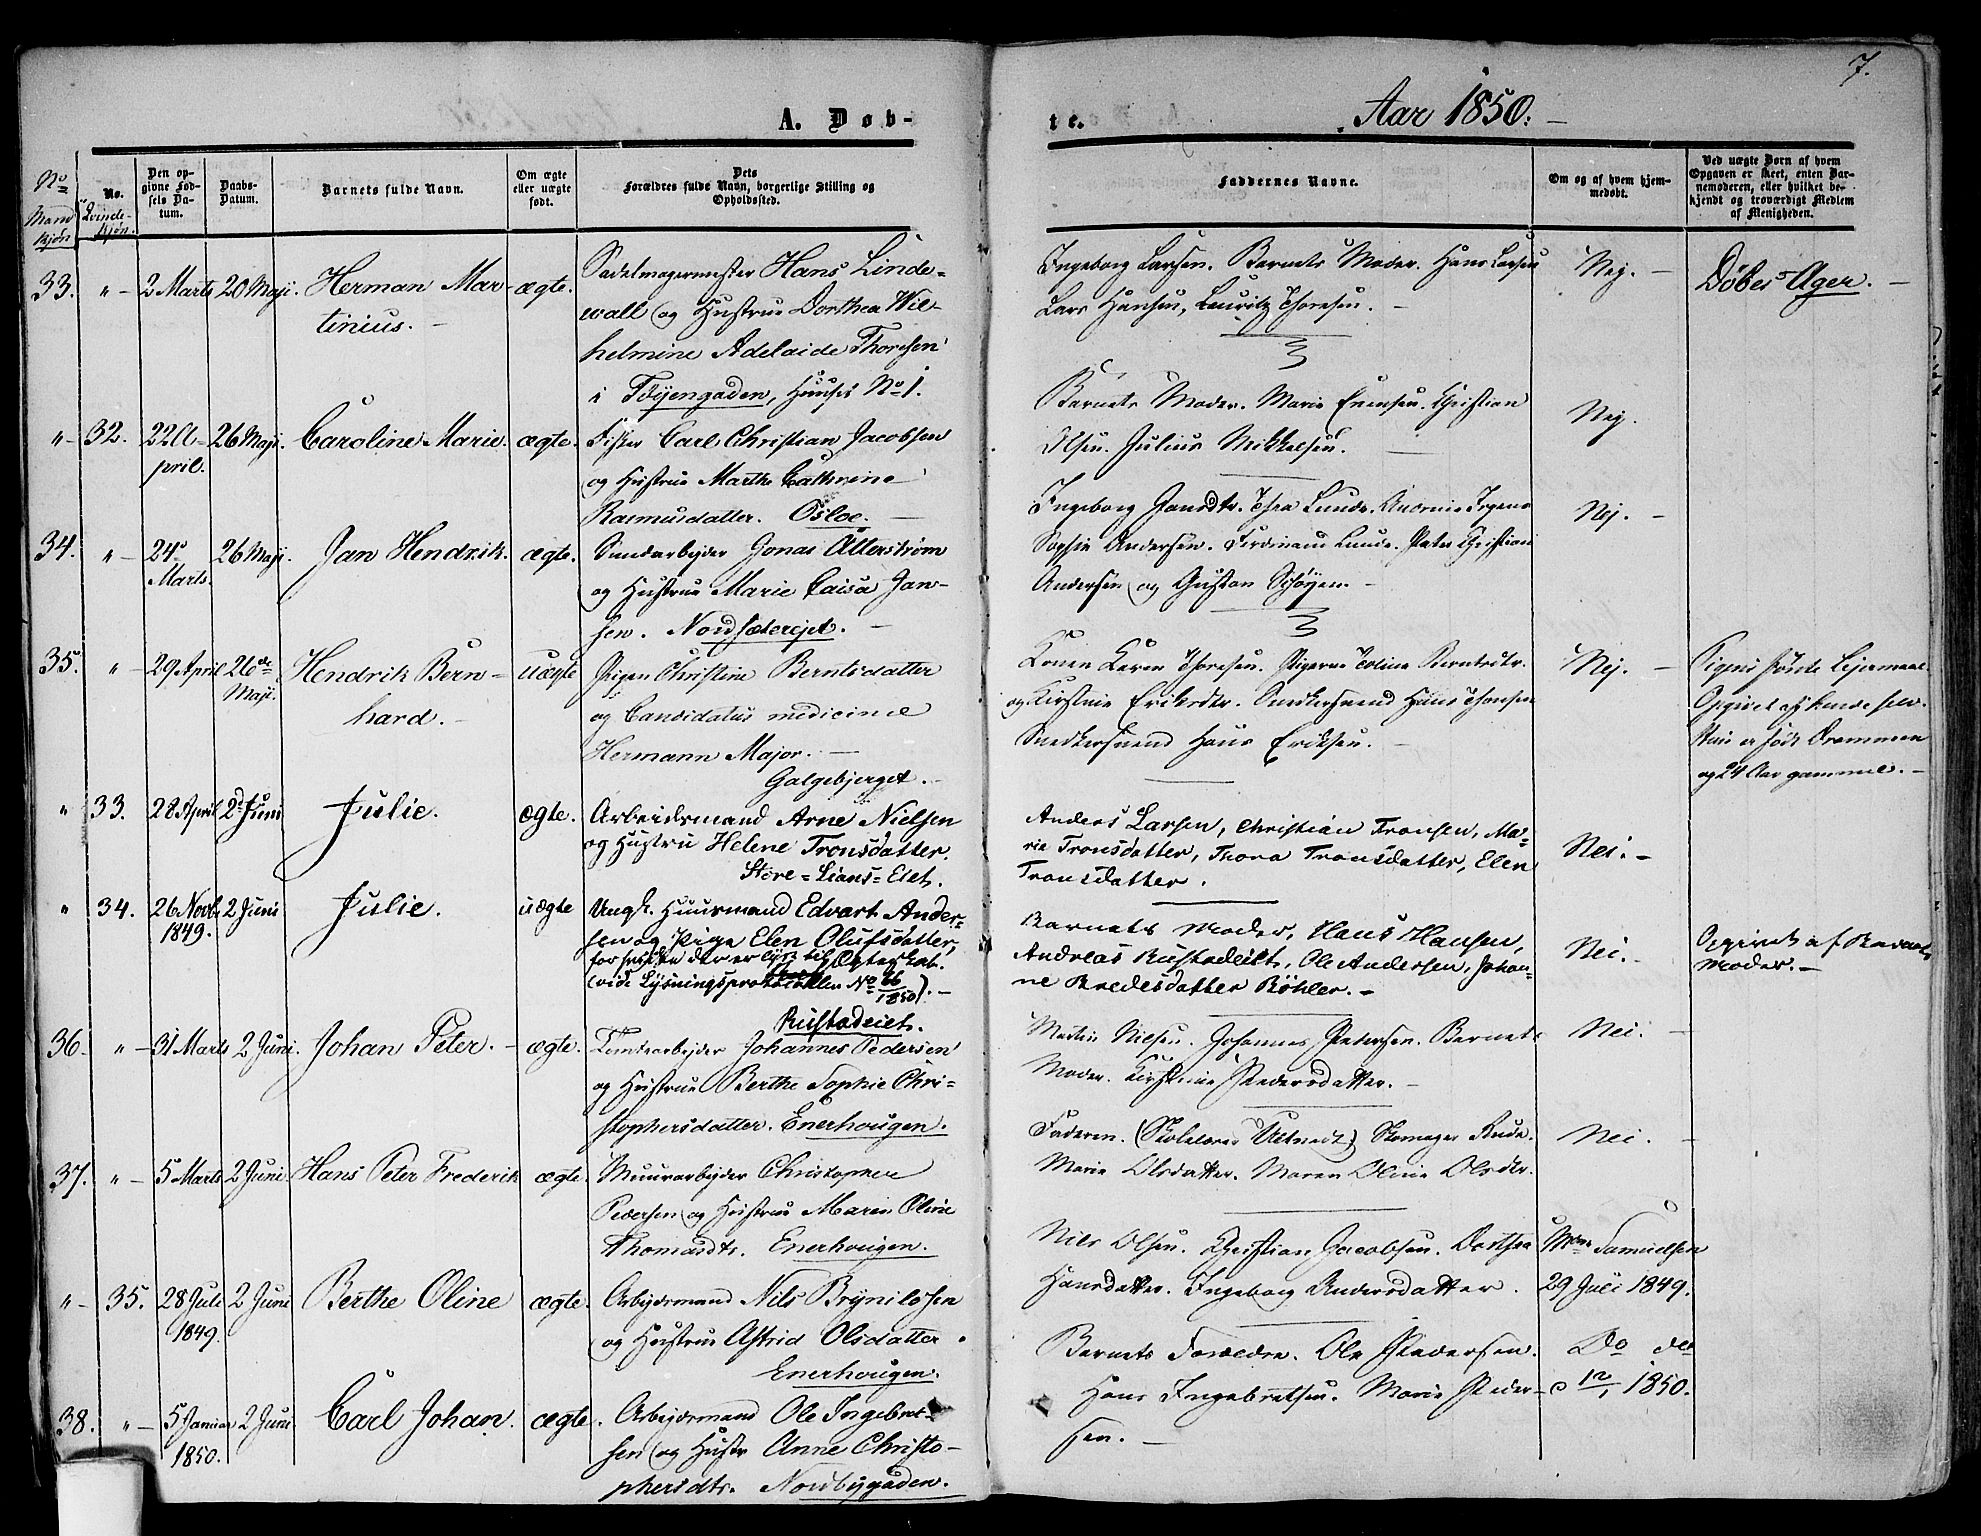 7.
A. Døb-
te.
Aar 1850.
No
Mand
kjøn
No.
Qvinde-
kjøn.
Den op-
givne Fød-
sels Da-
tum.
Daabs-
Datum.
Barnets fulde Navn.
Om ægte
eller uægte
født.
Dets
Forældres fulde Navn, borgerlige Stilling og
Opholdssted.
Faddernes Navne.
Om og af hvem hjem-
medøbt.
Ved uægte Børn af hvem
Opgaven er skeet, enten Bar-
nemoderen, eller hvilket be-
kjendt og troværdigt Medlem
af Menigheden.
33. " 2 Marts 20 Maji. Herman Mar-
tinius.
ægte.
Sadelmagermester Hans Linde-
wall og Hustrue Dorthea Wil-
helmine Adelaide Thoresen
i Tøyengaden, Huuset No 1.
Ingeborg Larsen. Barnets Moder. Hans Larsen
Lars Hansen, Lauritz Thoresen.
Nej.
Døbes Ager.
" 32. 22 A-
pril.
26 Maji. Caroline Marie. ægte.
Fisker Carl Christian Jacobsen
og Hustrue Marthe Cathrine
Rasmusdatter. Osloe.
Barnets Moder. Marie Evensen. Christian
Olsen. Julius Mikkelsen.
Nej.
34. " 24 Marts. 26 Maji. Jan Hendrik. ægte.
Jonas Atterstrøm
og Hustrue Marie Caisa Jan-
sen. Nordsæterejet.
Ingeborg Lunde.
Sophie Andersen. Ferdinand Lunde. Peter Christian
Andersen og Gustav Schøyen.
Nej.
35. " 29 April 26de
Maji.
Hendrik Bern-
hard.
uægte
Pigen Christine Berntsdatter
og Candidatus medicinæ
Hermann Major.
Galgebjerget.
Konen Karen Thoresen. Pigerne Oline Berntsdtr.
og Kirstine Eriksdtr. Snedkersvend Hans Thoresen
Snedkersvend Hans Eriksen.
Nej.
Pigens første Lejermaal.
Opgivet af hende selv.
Hun er født Drammen
og 24 Aar gammel.
" 33. 28 April 2d Juni Julie. ægte.
Arbeidsmand Arne Nielsen
og Hustru Helene Tronsdatter.
Store-Lians-Eiet.
Anders Larsen, Christian Tronsen, Ma-
rie Tronsdatter, Thora Tronsdatter, Elen
Tronsdatter.
Nei.
" 34. 26 Novb.
1849.
2 Juni Julie. uægte
Ungk. Huusmand Edvart Ander-
sen og Pige Elen Olufsdatter,
for hvilke der er lyst til Ægteskab.
(vide Lysningsprotocollen No 66/1850).
Rustadeiet.
Barnets Moder, Hans Hansen,
Andreas Rustadeiet, Ole Andersen, Johan-
ne Bredesdatter Bøhler.
Nei.
Opgivet af Barnets
Moder.
36. " 31 Marts 2 Juni. Johan Peter. ægte.
Tomtearbejder Johannes Pedersen
og Hustrue Berthe Sophie Chri-
stophersdatter. Enerhougen.
Martin Nielsen. Johannes Petersen. Barnets
Moder. Kirstine Pedersdatter.
Nei.
37. " 5 Marts 2 Juni. Hans Peter Frederik ægte.
Muurarbejder Christopher
Pedersen og Hustrue Maren Oline
Thomasdtr. Enerhougen.
Faderen. Skomager Rude.
Marie Olsdatter. Maren Oline Olsdtr.
Nei.
" 35. 28 Juli
1849.
2 Juni Berthe Oline ægte.
Arbejdsmand Nils Brynilsen
og Hustrue Astrid Olsdatter.
Enerhougen.
Nils Olsen. Christian Jacobsen. Dorthea
Hansdatter. Ingeborg Andersdatter.
Samuelsen
29 Juli 1849.
38. " 5 Januar
1850.
2 Juni Carl Johan. ægte.
Arbejdsmand Ole Ingebret-
sen og Hustr Anne Christo-
phersdtr. Nordbygaden.
Barnets Forældre. Ole Pedersen.
Hans Ingebretsen. Marie Peder-
sen.
Do do
12/1 1850.